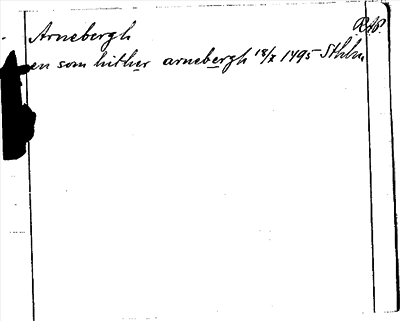 Arnebergh
en som hither arnebergh 18/X 1495 Sthlm